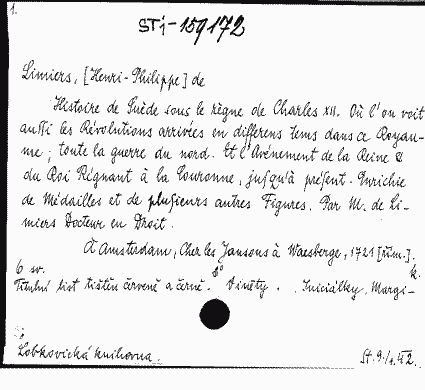 1.
ST i-159172
Limiers, [Henri-Philippe] de
Histoire de Suède sous le règne de Charles XII. Où l'on voit
aussi les Révolutions arrivées en differens tems dans ce Royau-
me; toute la guerre du nord. Et l'Avénement de la Reine &
du Roi Régnant à la Couronne, jusqu'à présent. Enrichie
de Médailles et de plusieurs autres Figures. Par M. de Li-
miers Docteur en Droit.
A Amsterdam, Chez les Jansons à Waesberge, 1721 [řím.].
6 sv. 8° k.
Titulní list tištěn červeně a černě. Viněty. Iniciálky. Margi-
Lobkovická knihovna.